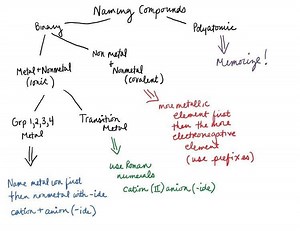 Naming Compounds
Binary
Polyatomic
Metal + Nonmetal
(ionic)
Non metal
+
Nonmetal
(covalent)
Memorize!
Grp 1,2,3,4
Metal
Transition
Metal
more metallic
element first
then the more
electronegative
element
(use prefixes)
Name metal ion first
then nonmetal with -ide
cation + anion (-ide)
use Roman
numerals
cation (II) anion (-ide)